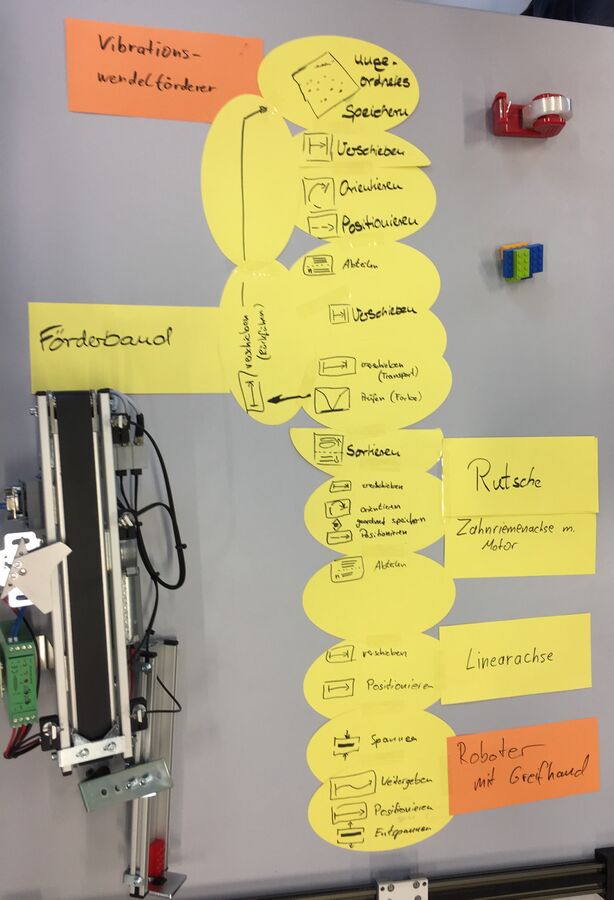 Vibrations-
wendelförderer
Unge-
ordnetes
Speichern
Verschieben
Orientieren
Positionieren
Abteilen
Verschieben
verschieben
(Rückführen)
verschieben
(Transport)
Prüfen (Farbe)
Förderband
Sortieren
Rutsche
verschieben
orientieren
geordnet speichern
Positionieren
Zahnriemenachse m.
Motor
Abteilen
verschieben
Positionieren
Linearachse
Spannen
Weitergeben
Positionieren
Entspannen
Roboter
mit Greifhand